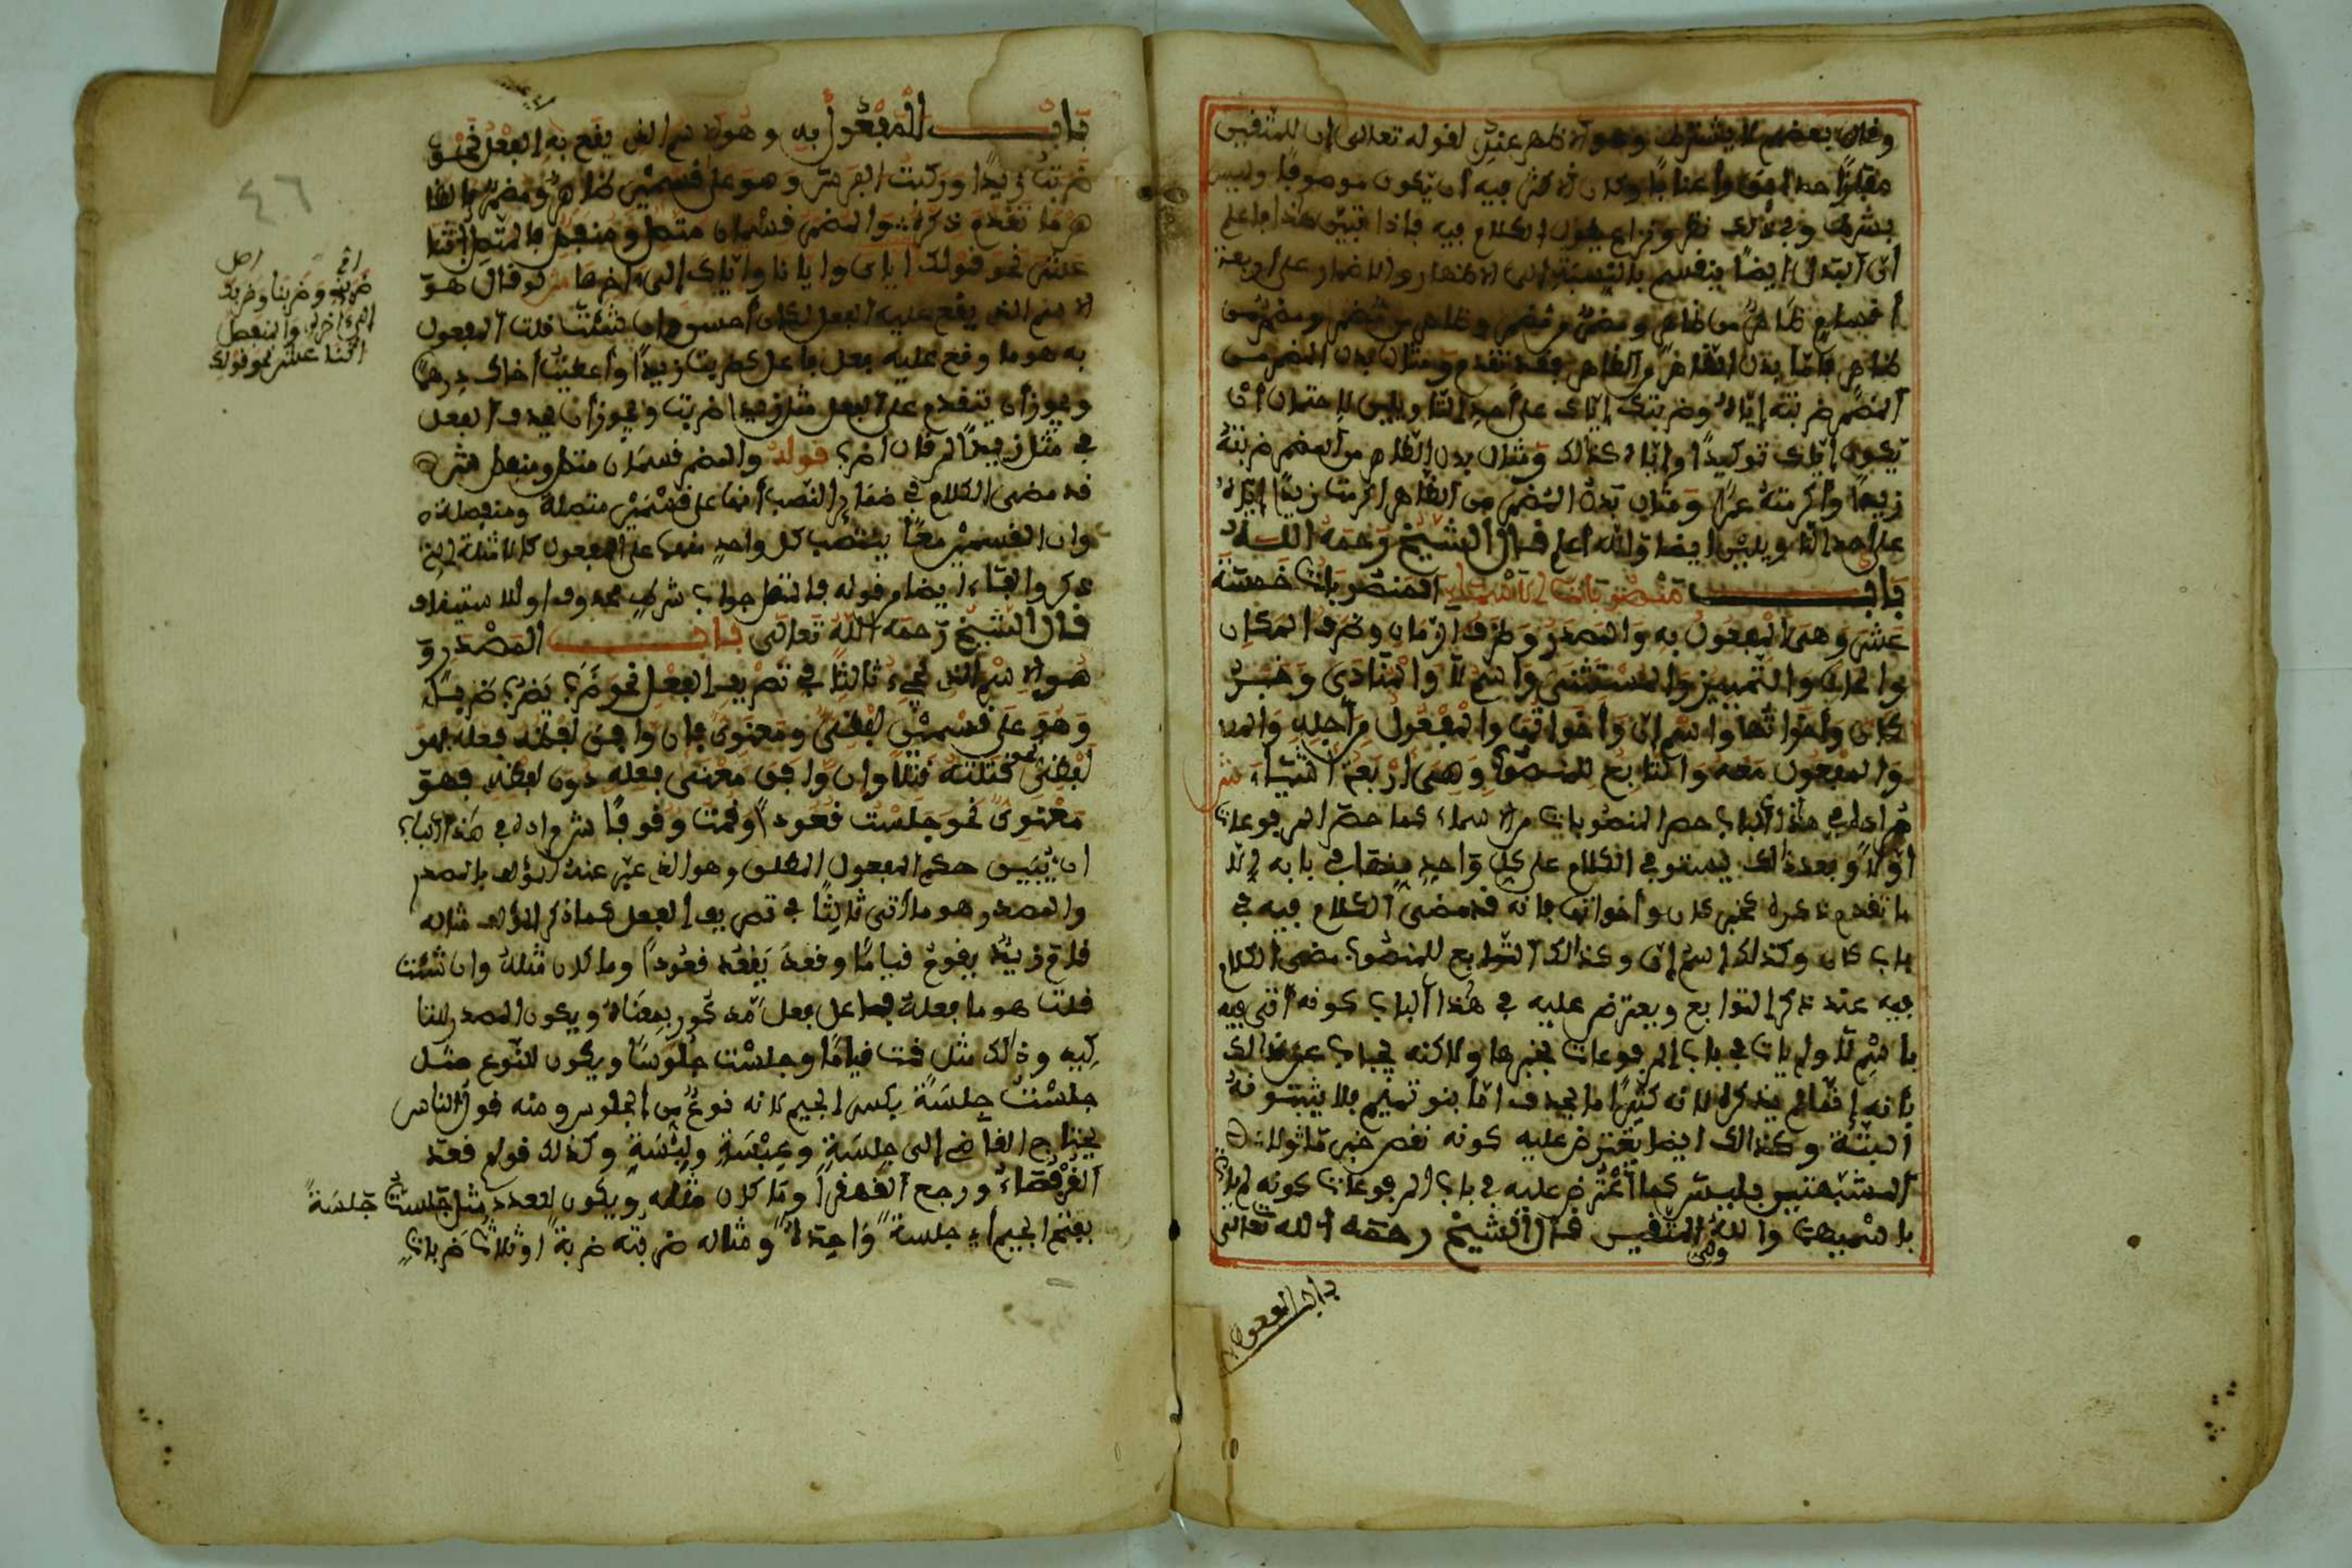 وقال بعضهم لا يشترط وهو الاظهر عندي لقوله تعالى ان للمتقين
مفازا حدائق واعنابا وكان الاكثر فيه ان يكون موصوفا وليس
بشرط وفي ذلك نظر ونزاع يطول الكلام فيه فاذا تبين هذا فاعلم
ان البدل ايضا ينقسم بالنسبة الى الاظهار والاضمار على اربعة
اقسام ظاهر من ظاهر ومضمر من مضمر وظاهر من مضمر ومضمر من
ظاهر فاما بدل الظاهر من الظاهر فقد تقدم ومثال بدل المضمر من
المضمر ضربته إياه وضربتك إياك على أحد التاويلين لاحتمال أن
يكون إياك توكيدا وإياه كذالك ومثال بدل الظاهر من المضمر ضربته
زيدا وأكرمته عمرا ومثال بدل المضمر من الظاهر اكرمت زيدا إياه
على أحد التاويلين ايضا والله أعلم قال الشيخ رحمه اللـه
باب منصوبات الاسماء المنصوبات خمسة
عشر وهي المفعول به والمصدر وظرف الزمان وظرف المكان
والحال والتمييز والمستثنى واسم لا والمنادى وخبر
كان وأخواتها واسم ان وأخواتها والمفعول من أجله
والمفعول معه والتابع للمنصوب وهي أربعة أشياء ش
مراده في هذا الباب حصر المنصوبات من الاسماء كما حصر المرفوعات
اولا وبعد ذالك يستوفي الكلام على كل واحد منها في بابه إلا
ما تقدم ذكره كخبر كان وأخواتها فانه قد مضى الكلام فيه في
باب كان وكذلك إسم إن وكذالك التوابع للمنصوب مضى الكلام
فيه عند ذكر التوابع ويعترض عليه في هذا الباب كونه أتى فيه
باسم لا ولم يات في باب المرفوعات بخبرها ولاكنه يجاب عن ذالك
بأنه إنما لم يذكره لانه كثيرا ما يحذف اما بنو تميم فلا يثبتونه
البتة وكذالك ايضا يعترض عليه كونه نقص خبر ما ولات
المشبهتين بليس كما أعترض عليه في باب المرفوعات كونه لم يات
باسميهما والله المتقين قال الشيخ رحمه الله تعالى
باب المفعول
باب المفعول به وهو الاسم الذي يقع به الفعل نحو
ضربت زيدا وركبت الفرس وهو على قسمين ظاهر ومضمر فالظا
هر ما تقدم ذكره والمضمر قسمان متصل ومنفصل فالمتصل اثنا
عشر نحو قولك اياي وايانا واياك إلى ءاخرها ش لو قال هو
الاسم الذي يقع عليه الفعل لكان أحسن وإن شئت قلت المفعول
به هو ما وقع عليه فعل فاعل كضربت زيدا وأعطيت أخاك درهما
ويجوز أن يتقدم على الفعل مثل زيدا ضربت ويجوز أن يحذف الفعل
في مثل زيدا لمن قال اضرب قوله والمضمر قسمان متصل ومنفصل
قد مضى الكلام في ضمائر النصب أنها على قسمين متصلة ومنفصلة
وان القسمين معا ينتصب كل واحد منهما على المفعول كالامثلة التي
ذكر والفاء ايضا من قوله فالمتصل جواب شرط محذوف او للاستيناف
قال الشيخ رحمه الله تعالى باب المصدر و
هو الاسم الذي يجيء ثالثا في تصريف الفعل نحو ضرب يضرب ضربا
وهو على قسمين لفظي ومعنوي فان وافق لفظه فعله فهو
لفظي نحو قتلته قتلا وان وافق معنى فعله دون لفظه فهو
معنوي نحو جلست قعودا وقمت وقوفا ش مراده في هذا الباب
ان يبين حكم المفعول المطلق وهو الذي عبر عنه المؤلف بالمصدر
والمصدر هو ما أتى ثالثا في تصريف الفعل كما ذكر المؤلف مثاله
قام زيد يقوم قياما وقعد يقعد قعودا وما كان مثله وان شئت
قلت هو ما فعله فاعل فعل مذكور بمعناه ويكون المصدر للتا
كيد وذالك مثل قمت قياما وجلست جلوسا ويكون للنوع مثل
جلست جلسة بكسر الجيم لانه نوع من الجلوس ومنه قول الناس
يحتاج القاضي إلى جلسة وعبسة ولبسة وكذلك قولهم قعد
القرفصاء ورجع القهقرا وما كان مثله ويكون للعدد مثل جلست جلسة
بفتح الجيم اي جلسة واحدة ومثاله ضربته ضربة او ثلاث ضربات
٤٦
ضربني وضربنا وضربك
إلى ءاخره والمنفصل
اثنا عشر نحو قولك